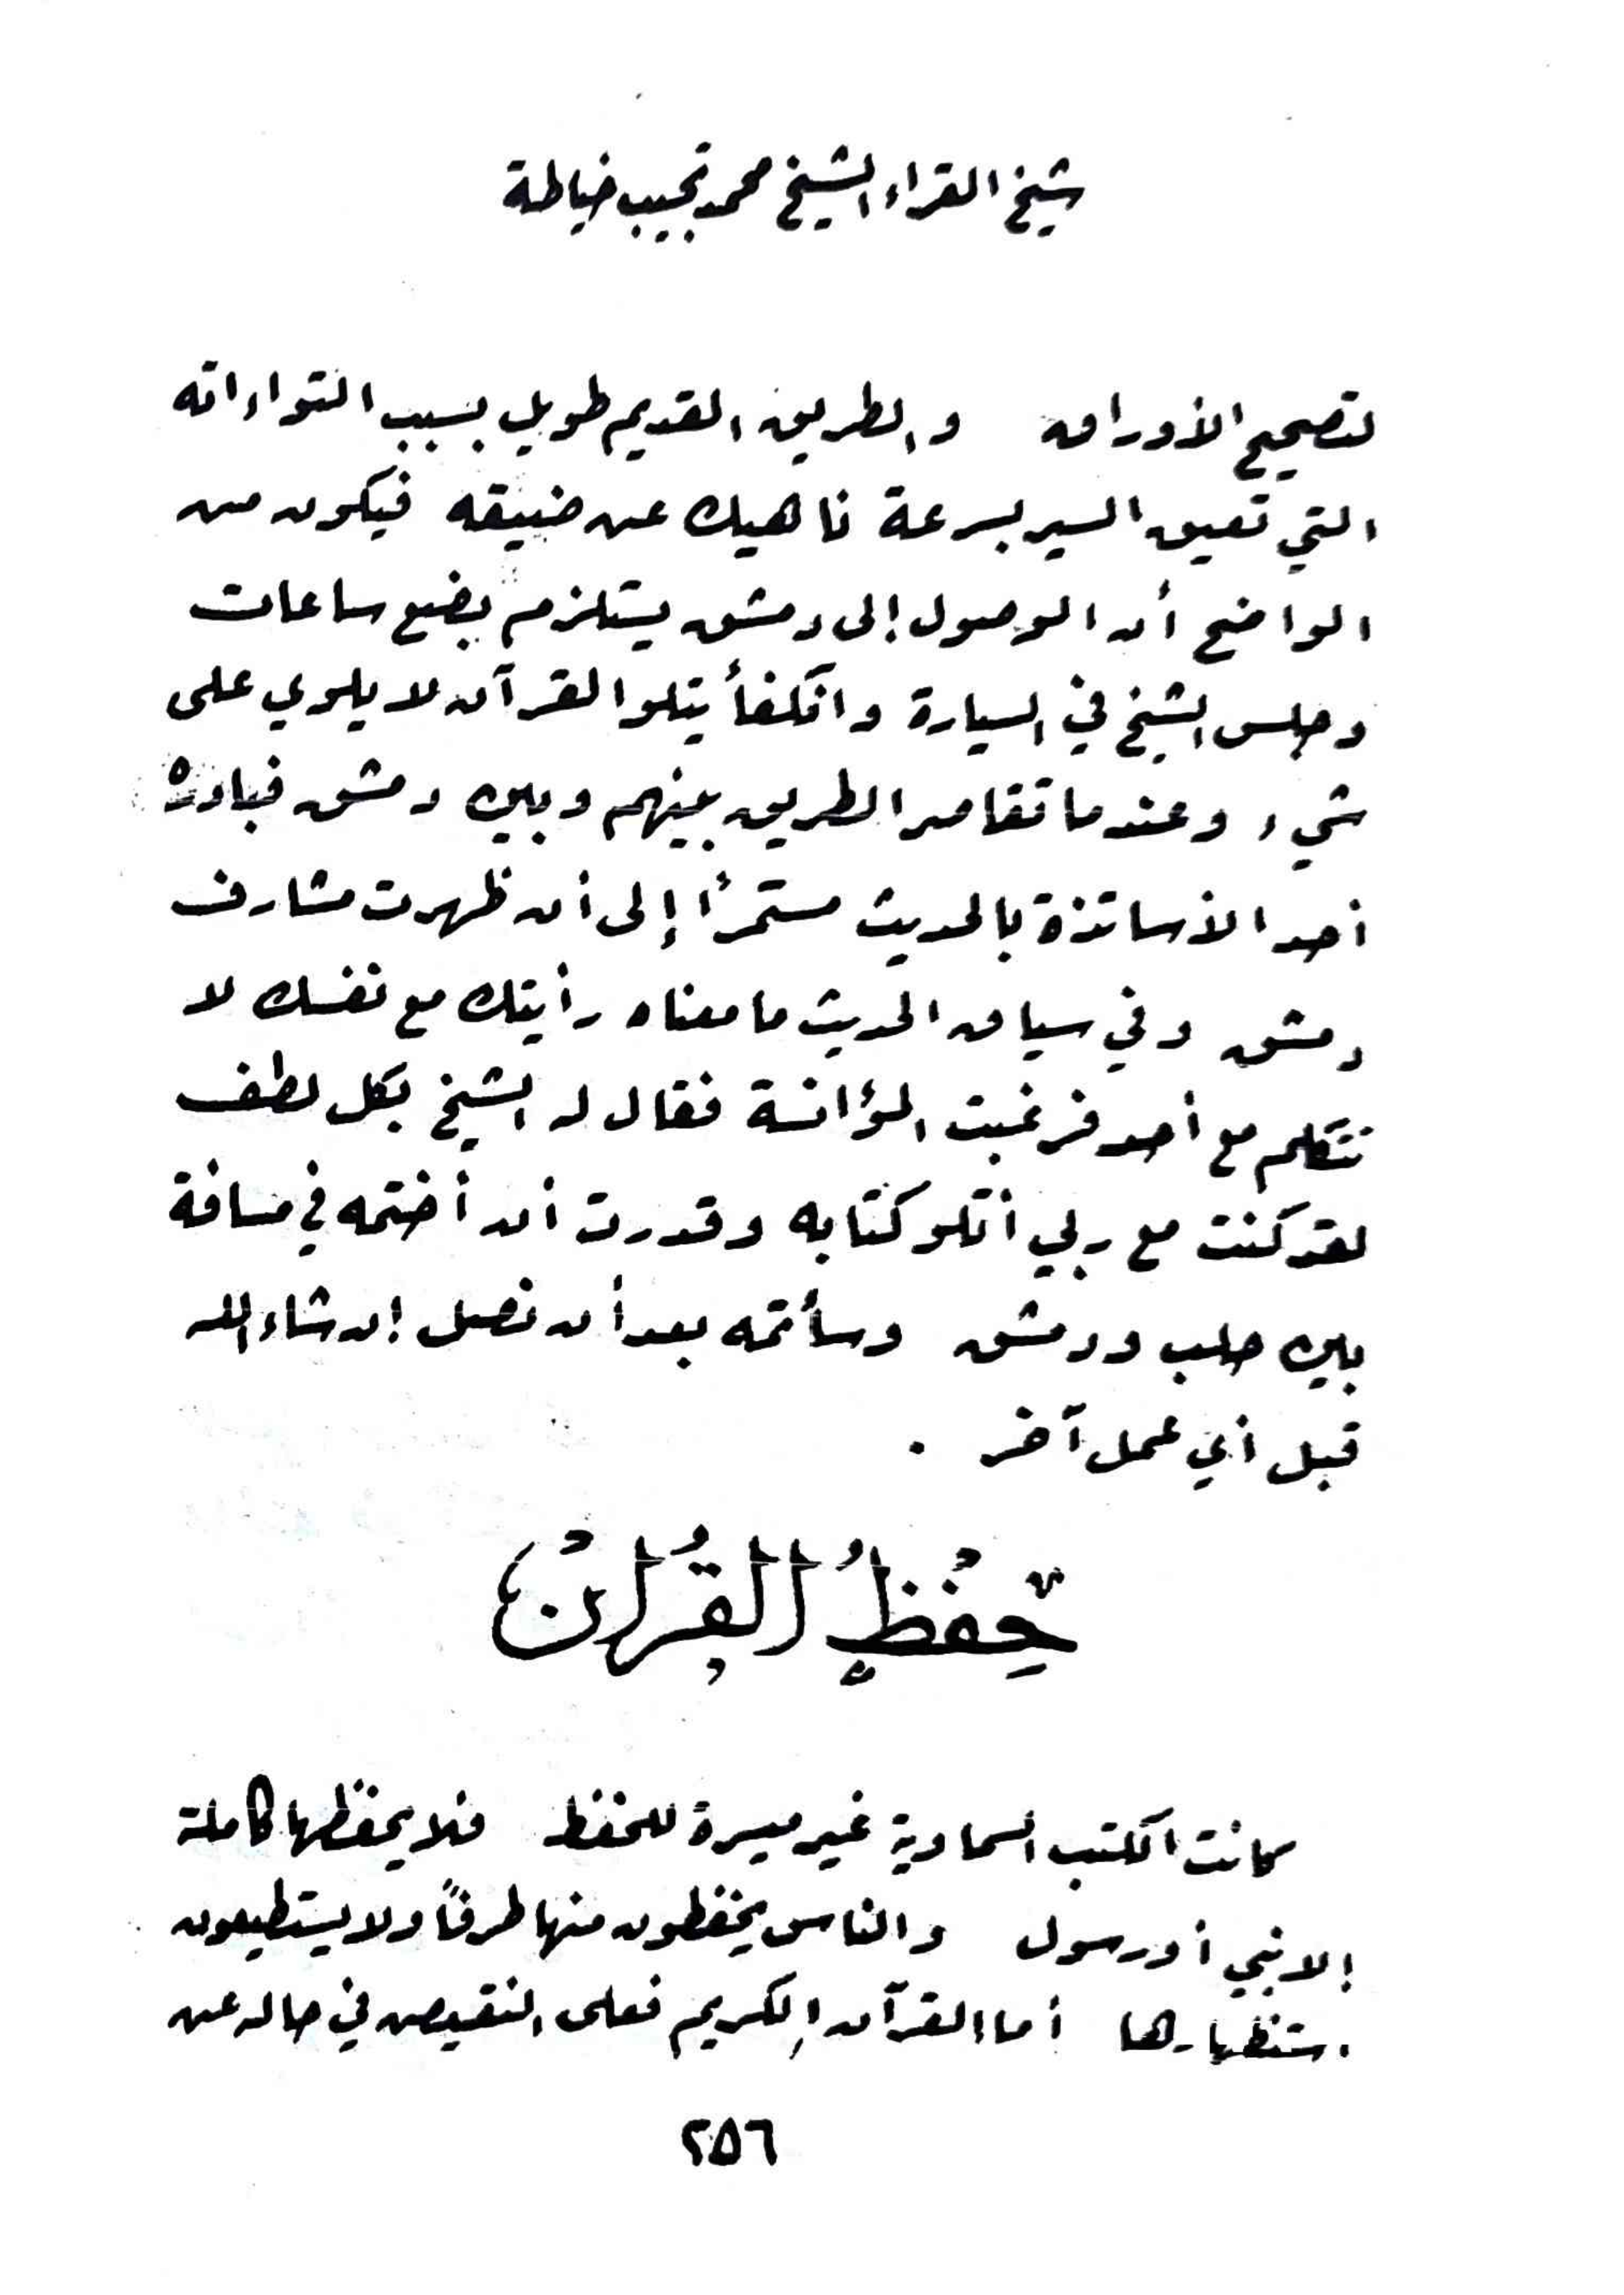 شيخ القراء الشيخ محمد نجيب خياطة
لتصحيح الأوراق والطريق القديم طويل بسبب التواءاته
التي تعيق السير بسرعة ناهيك عن ضيقه فيكون من
الواضح أن الوصول إلى دمشق يستلزم بضع ساعات
وجلس الشيخ في السيارة وانكفأ يتلو القرآن لا يلوي على
شيء وعندما تقاصر الطريق بينهم وبين دمشق فبادره
أحد الأساتذة بالحديث مستمرًا إلى أن ظهرت مشارف
دمشق وفي سياق الحديث ما معناه رأيتك مع نفسك لا
تتكلم مع أحد فرغبت المؤانسة فقال له الشيخ بكل لطف
لقد كنت مع ربي أتلو كتابه وقدرت أن أختمه في مسافة
بين حلب ودمشق وسأتمه بعد أن نصل إن شاء الله
قبل أي عمل آخر .
حِفْظُ القُرانْ
كانت الكتب السماوية غير ميسرة للحفظ فلا يحفظها كاملة
إلا نبي أو رسول والناس يحفظون منها طرفًا ولا يستطيعون
استظهارها أما القرآن الكريم فعلى النقيض في حاله عن
٢٥٦